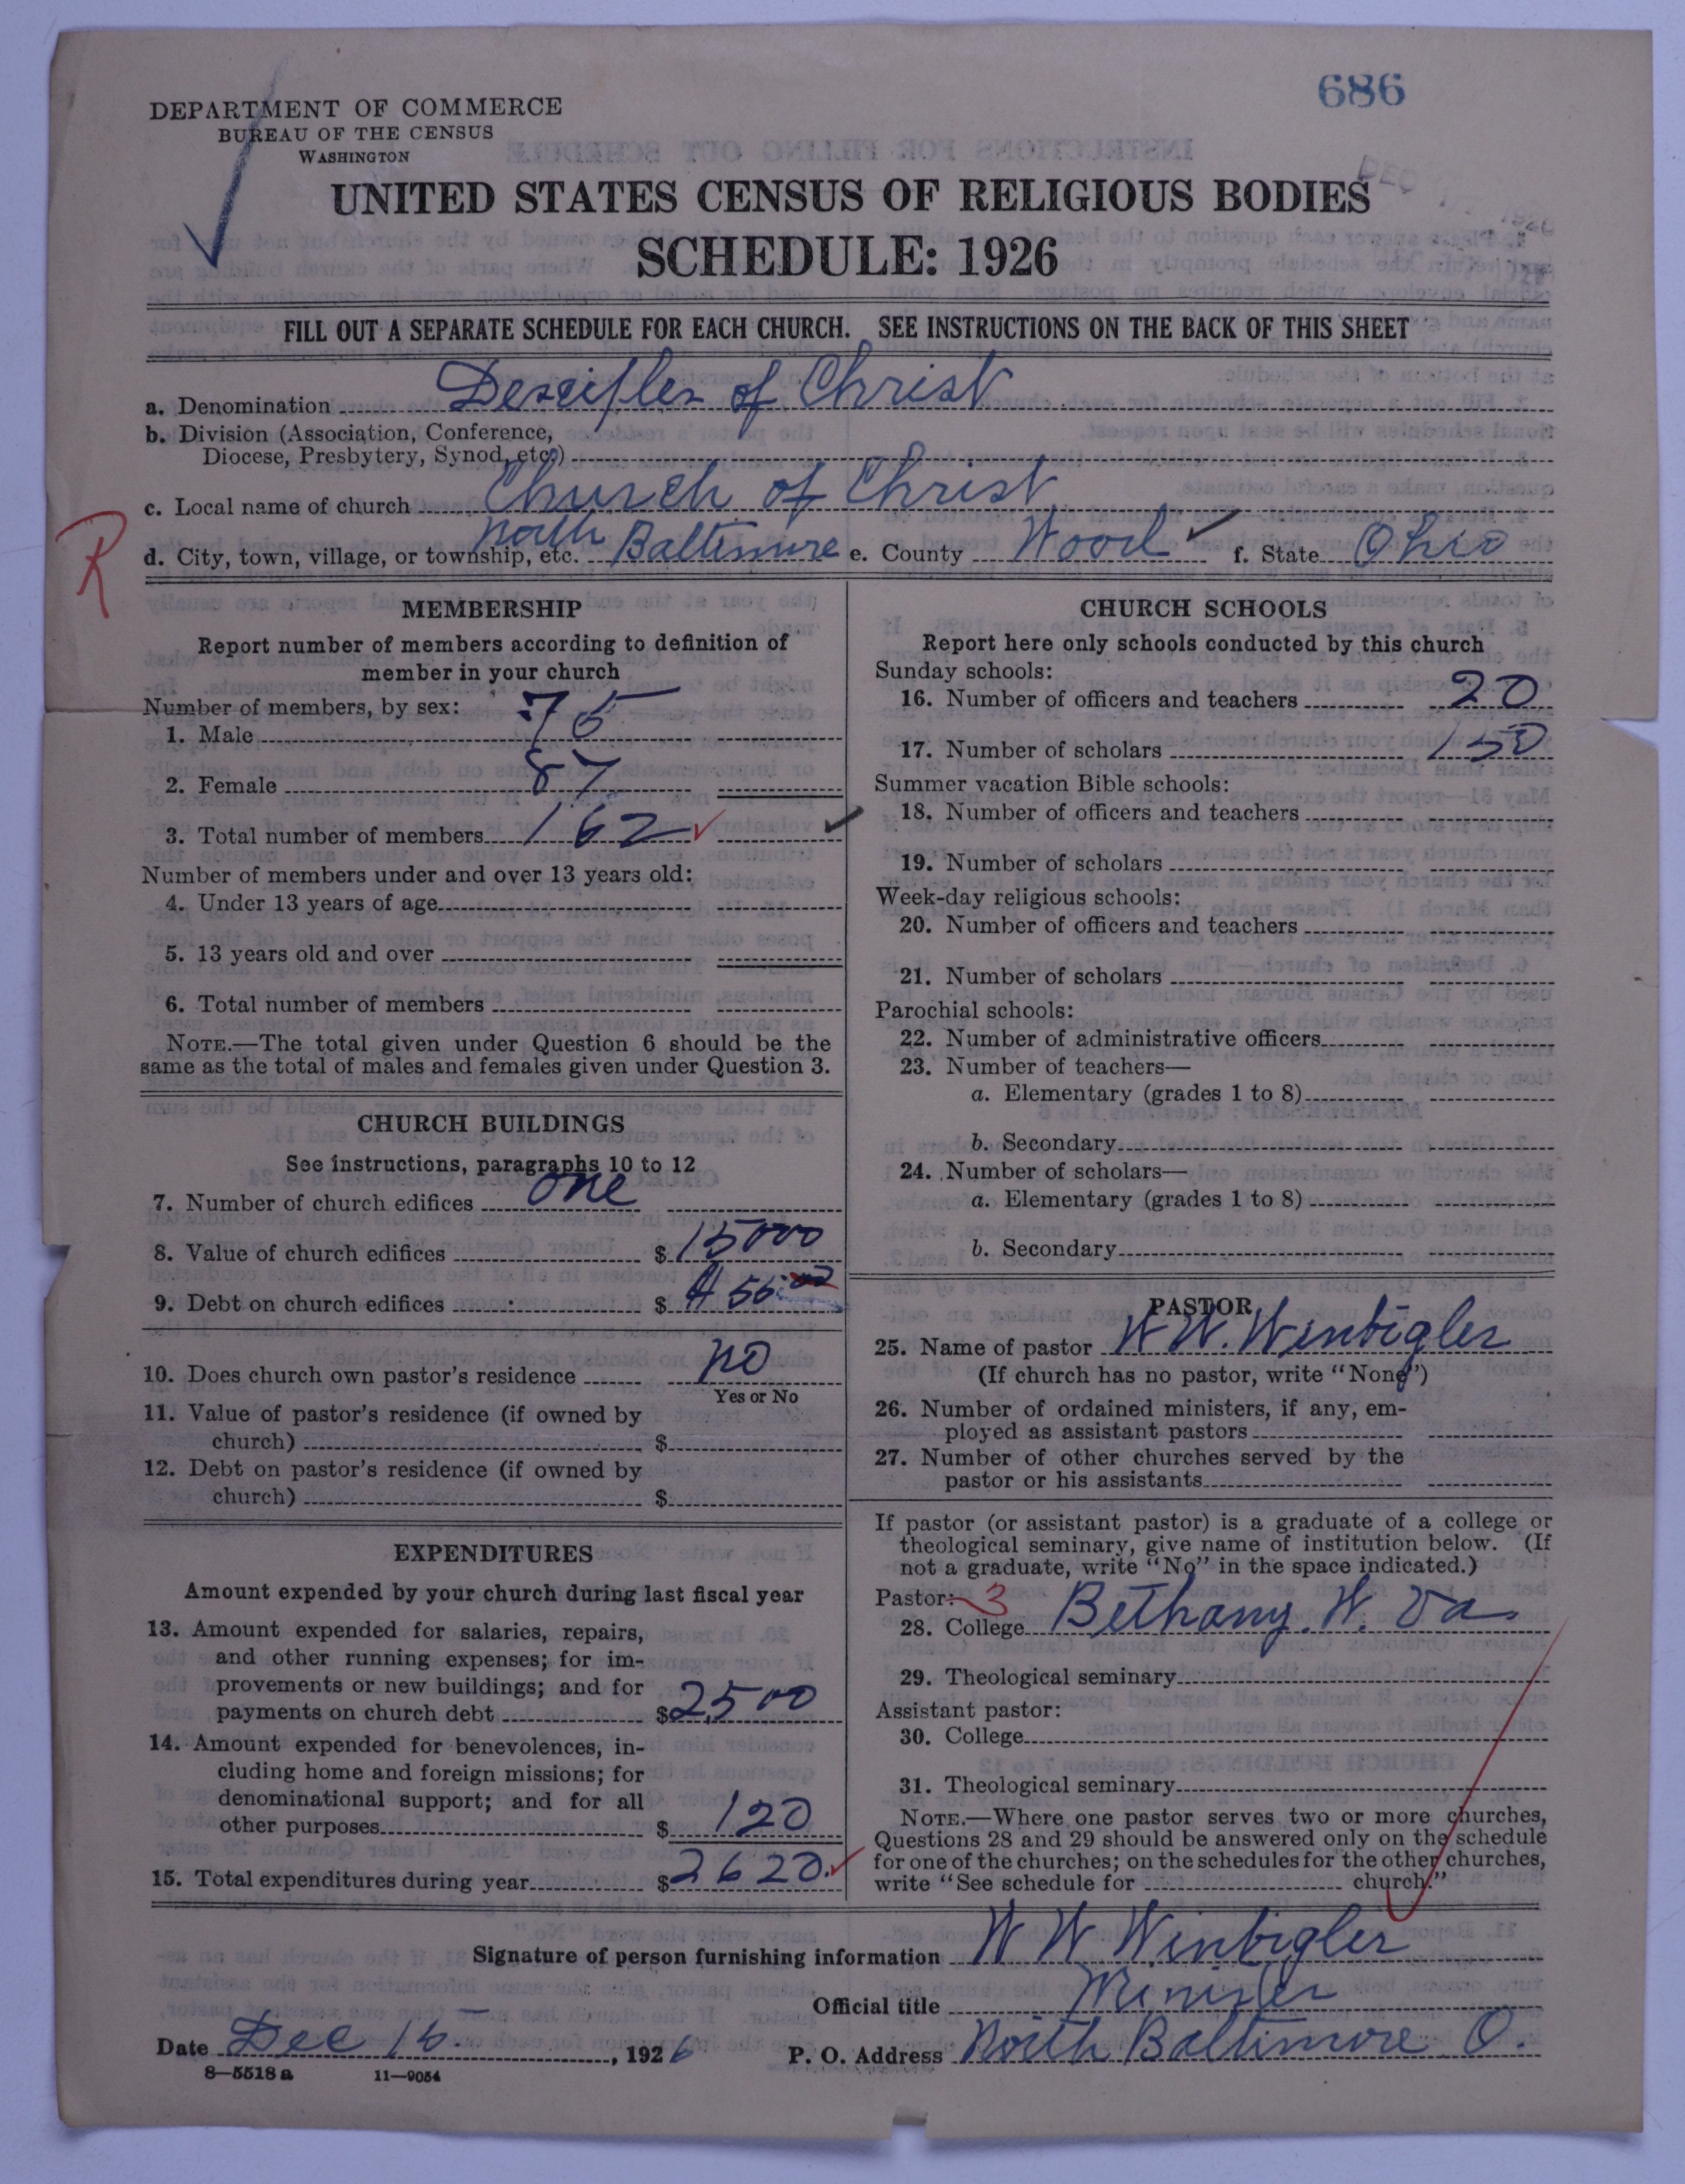 686
DEPARTMENT OF COMMERCE
BUREAU OF THE CENSUS
WASHINGTON
UNITED STATES CENSUS OF RELIGIOUS BODIES
SCHEDULE: 1926
FILL OUT A SEPARATE SCHEDULE FOR EACH CHURCH. SEE INSTRUCTIONS ON THE BACK OF THIS SHEET
a. Denomination Desciples of Christ
b. Division (Association, Conference,
Diocese, Presbytery, Synod, etc.)
c. Local name of church Church of Christ
d. City, town, village, or township, etc. North Baltimore e. County Wood f. State Ohio
R
MEMBERSHIP
Report number of members according to definition of
member in your church
Number of members, by sex:
1. Male 75
2. Female 87
3. Total number of members 162
Number of members under and over 13 years old:
4. Under 13 years of age
5. 13 years old and over
6. Total number of members
NOTE.—The total given under Question 6 should be the
same as the total of males and females given under Question 3.
CHURCH BUILDINGS
See instructions, paragraphs 10 to 12
7. Number of church edifices one
8. Value of church edifices $ 15000
9. Debt on church edifices $
10. Does church own pastor's residence no
Yes or No
11. Value of pastor's residence (if owned by
church) $
12. Debt on pastor's residence (if owned by
church) $
EXPENDITURES
Amount expended by your church during last fiscal year
13. Amount expended for salaries, repairs,
and other running expenses; for im-
provements or new buildings; and for
payments on church debt $ 2,500
14. Amount expended for benevolences, in-
cluding home and foreign missions; for
denominational support; and for all
other purposes $ 120
15. Total expenditures during year $ 2620.
CHURCH SCHOOLS
Report here only schools conducted by this church
Sunday schools:
16. Number of officers and teachers 20
17. Number of scholars 150
Summer vacation Bible schools:
18. Number of officers and teachers
19. Number of scholars
Week-day religious schools:
20. Number of officers and teachers
21. Number of scholars
Parochial schools:
22. Number of administrative officers
23. Number of teachers—
a. Elementary (grades 1 to 8)
b. Secondary
24. Number of scholars—
a. Elementary (grades 1 to 8)
b. Secondary
PASTOR
25. Name of pastor W. W. Winbigler
(If church has no pastor, write "None")
26. Number of ordained ministers, if any, em-
ployed as assistant pastors
27. Number of other churches served by the
pastor or his assistants
If pastor (or assistant pastor) is a graduate of a college or
theological seminary, give name of institution below. (If
not a graduate, write "No" in the space indicated.)
Pastor: 3
28. College Bethany. W. Va.
29. Theological seminary
Assistant pastor:
30. College
31. Theological seminary
NOTE.—Where one pastor serves two or more churches,
Questions 28 and 29 should be answered only on the schedule
for one of the churches; on the schedules for the other churches,
write "See schedule for church."
Signature of person furnishing information W W Winbigler
Official title Minister
Date Dec 15 , 1926 P. O. Address North Baltimore O.
8—5518 a 11—9054